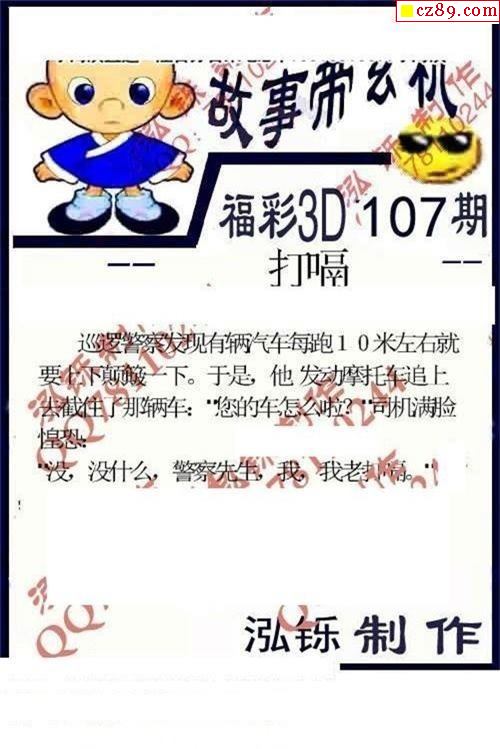 cz89.com
故事带玄机
福彩3D 107期
-- 打嗝 --
巡逻警察发现有辆汽车每跑10米左右就
要上下颠簸一下。于是，他 发动摩托车追上
去截住了那辆车："您的车怎么啦？"司机满脸
惶恐：
"没，没什么，警察先生，我，我老打嗝。"
泓铄制作